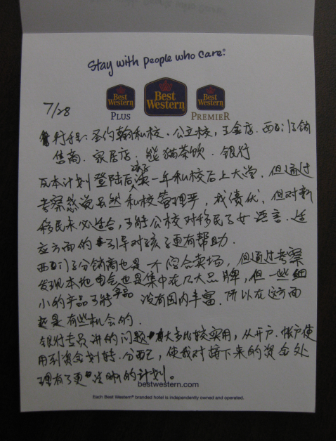 Stay with people who care!
Best Western PLUS
Best Western
Best Western PREMIER
7/28
行程:圣约翰私校、公立校、五金店、西门子销
售商、家居店、熊猫餐饮、银行
原本计划登陆后读一年私校后上大学,但通过
考察感觉虽然私校管理平,我传从,但对新
移民未必适合,了解公校对移民子女语言、适
应方面的引导对孩子更有帮助。
西门子分销商也是不宜会卖场,但通过考察
发现本地电会也是集中在几大品牌,但一些细
小的产品了解 没有国内丰富,所以在这方面
是有些机会的。
银行专员讲的问题大多比较实用,从开户、帐户使
用到资金划转、分配,使我对接下来的资金处
理有了更清晰的计划。
bestwestern.com
Each Best Western® branded hotel is independently owned and operated.